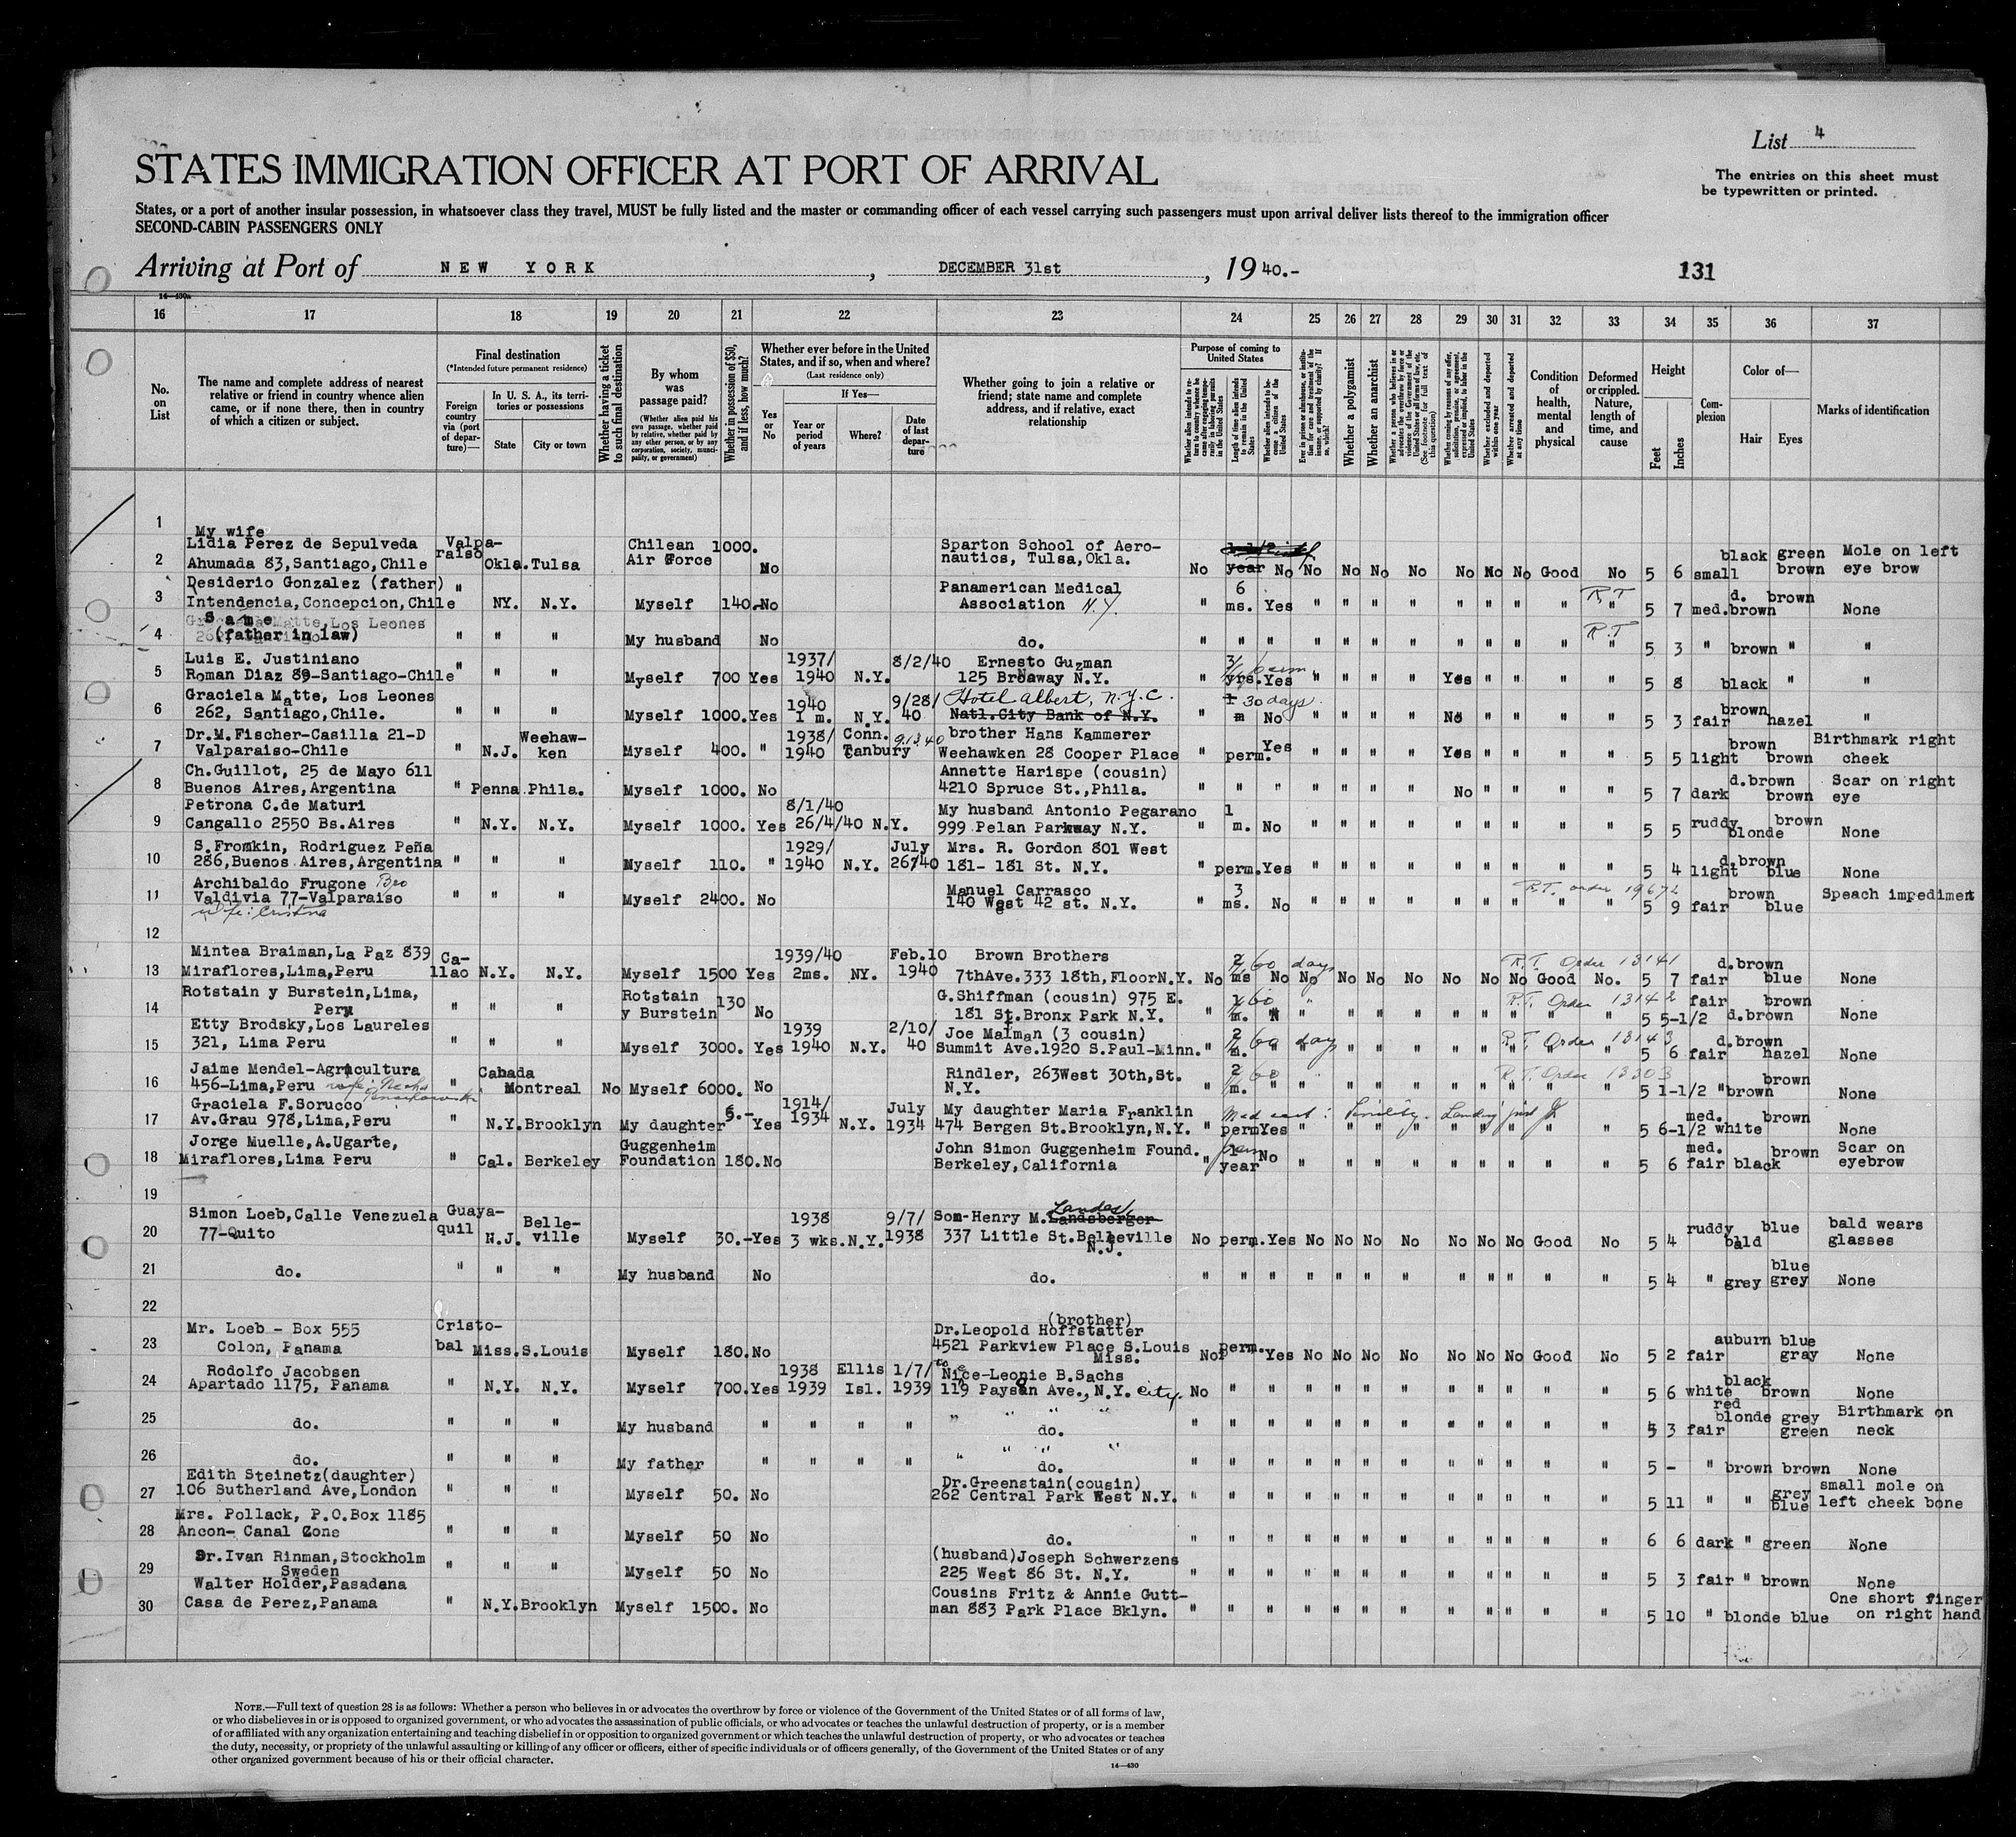 List 4
STATES IMMIGRATION OFFICER AT PORT OF ARRIVAL
The entries on this sheet must
be typewritten or printed.
States, or a port of another insular possession, in whatsoever class they travel, MUST be fully listed and the master or commanding officer of each vessel carrying such passengers must upon arrival deliver lists thereof to the immigration officer
SECOND-CABIN PASSENGERS ONLY
Arriving at Port of NEW YORK, DECEMBER 31st, 1940.-
131
14—430a
16 17 18 19 20 21 22 23 24 25 26 27 28 29 30 31 32 33 34 35 36 37
No. on List
The name and complete address of nearest relative or friend in country whence alien came, or if none there, then in country of which a citizen or subject.
Final destination
(*Intended future permanent residence)
Foreign country via (port of departure)—
In U. S. A., its territories or possessions
State
City or town
Whether having a ticket to such final destination
By whom was passage paid?
(Whether alien paid his own passage, whether paid by relative, whether paid by any other person, or by any corporation, society, municipality, or government)
Whether in possession of $50, and if less, how much?
Whether ever before in the United States, and if so, when and where?
(Last residence only)
Yes or No
If Yes—
Year or period of years
Where?
Date of last departure
Whether going to join a relative or friend; state name and complete address, and if relative, exact relationship
Purpose of coming to United States
Whether alien intends to return to country whence he came after engaging temporarily in laboring pursuits in the United States
Length of time alien intends to remain in the United States
Whether alien intends to become a citizen of the United States
Ever in prison or almshouse, or institution for care and treatment of the insane, or supported by charity? If so, which?
Whether a polygamist
Whether an anarchist
Whether a person who believes in or advocates the overthrow by force or violence of the Government of the United States or all forms of law, etc. (See footnote for full text of this question)
Whether coming by reasons of any offer, solicitation, promise, or agreement, expressed or implied, to labor in the United States
Whether excluded and deported within one year
Whether arrested and deported at any time
Condition of health, mental and physical
Deformed or crippled. Nature, length of time, and cause
Height
Feet
Inches
Complexion
Color of—
Hair
Eyes
Marks of identification
1
My wife
2 Lidia Perez de Sepulveda Ahumada 83, Santiago, Chile Valparaiso Okla. Tulsa Chilean Air Force 1000. No Sparton School of Aeronautics, Tulsa, Okla. No year No No No No No No No No Good No 5 6 small black brown green brown Mole on left eye brow
3 Desiderio Gonzalez (father) Intendencia, Concepcion, Chile " NY. N.Y. Myself 140.- No Panamerican Medical Association N.Y. " 6 ms. Yes " " " " " " " " R.T " 5 7 med. d. brown brown None
4 Same (father in law) Graciela Matte, Los Leones " " " My husband No do. " " " " " " " " " " " R.T " 5 3 " brown " "
5 Luis E. Justiniano Roman Diaz 89-Santiago-Chile " " " Myself 700 Yes 1937/1940 N.Y. 8/2/40 Ernesto Guzman 125 Broaway N.Y. " 3 yrs. Yes " " " " Yes " " " " 5 8 black " "
6 Graciela Matte, Los Leones 262, Santiago, Chile. " " " Myself 1000. Yes 1940 1 m. N.Y. 9/28/40 Hotel Albert, N.Y.C. Natl. City Bank of N.Y. " 1 m 30 days No " " " " No " " " " 5 3 fair brown hazel "
7 Dr. M. Fischer-Casilla 21-D Valparaiso-Chile " N.J. Weehawken Myself 400. " 1938/1940 Conn. Tanbury 9.13.40 brother Hans Kammerer Weehawken 28 Cooper Place " perm. Yes " " " " Yes " " " " 5 5 light brown brown Birthmark right cheek
8 Ch. Guillot, 25 de Mayo 611 Buenos Aires, Argentina " Penna. Phila. Myself 1000. No Annette Harispe (cousin) 4210 Spruce St., Phila. " " " " " " " No " " " " 5 7 dark d.brown brown Scar on right eye
9 Petrona C. de Maturi Cangallo 2550 Bs. Aires " N.Y. N.Y. Myself 1000. Yes 8/1/40 26/4/40 N.Y. My husband Antonio Pegarano 999 Pelan Parkway N.Y. " 1 m. No " " " " " " " " " 5 5 ruddy blonde brown None
10 S. Fromkin, Rodriguez Peña 286, Buenos Aires, Argentina " " " Myself 110. " 1929/1940 N.Y. July 26/40 Mrs. R. Gordon 801 West 181- 181 St. N.Y. " perm. Yes " " " " " " " " " 5 4 light d.brown blue None
11 Archibaldo Frugone Bro Valdivia 77-Valparaiso wife: Cristina " " " Myself 2400. No Manuel Carrasco 140 West 42 st. N.Y. " 3 ms. No " " " " " " " " " R.T. order 19672 5 9 fair brown blue Speach impediment
12
13 Mintea Braiman, La Paz 839 Miraflores, Lima, Peru Callao N.Y. N.Y. Myself 1500 Yes 1939/40 2ms. NY. Feb.10 1940 Brown Brothers 7thAve. 333 18th, Floor N.Y. No 2 ms 60 days No No No No No No No No Good No. R.T. Order 13141 5 7 fair d.brown blue None
14 Rotstain y Burstein, Lima, Peru " " " Rotstain y Burstein 130 No G. Shiffman (cousin) 975 E. 181 St. Bronx Park N.Y. " m. 60 " N " " " " " " " " " R.T. Order 13142 5 5-1/2 fair d.brown brown None
15 Etty Brodsky, Los Laureles 321, Lima Peru " " " Myself 3000. Yes 1939 1940 N.Y. 2/10/40 Joe Malman (3 cousin) Summit Ave. 1920 S. Paul-Minn. " 2 m. 60 days " " " " " " " " " " R.T. Order 13143 5 6 fair d.brown hazel None
16 Jaime Mendel-Agricultura 456-Lima, Peru " Canada Montreal No Myself 6000. No Rindler, 263 West 30th, St. N.Y. " 2 m. 60 " " " " " " " " " " R.T. Order 13303 5 1-1/2 " brown brown None
17 Graciela F. Sorucco Av. Grau 978, Lima, Peru " N.Y. Brooklyn My daughter 5.- Yes 1914/1934 N.Y. July 1934 My daughter Maria Franklin 474 Bergen St. Brooklyn, N.Y. " perm Yes Med cert: Senility. " " " " " " " " " 5 6-1/2 med. white brown None
18 Jorge Muelle, A. Ugarte, Miraflores, Lima Peru " Cal. Berkeley Guggenheim Foundation 180. No John Simon Guggenheim Found. Berkeley, California " 1 year No " " " " " " " " " 5 6 med. fair black brown Scar on eyebrow
19
20 Simon Loeb, Calle Venezuela 77-Quito Guayaquil N.J. Belleville Myself 30.- Yes 1938 3 wks. N.Y. 9/7/1938 Son-Henry M. Landsberger Landes 337 Little St. Belleville N.J. No perm. Yes No No No No No No No Good No 5 4 ruddy bald blue bald wears glasses
21 do. " " " My husband No do. " " " " " " " " " " " " 5 4 " grey blue grey None
22
23 Mr. Loeb - Box 555 Colon, Panama Cristobal Miss. S.Louis Myself 180. No (brother) Dr. Leopold Hoffstatter 4521 Parkview Place S.Louis Miss. No Perm. Yes No No No No No No No Good No 5 2 fair auburn blue gray None
24 Rodolfo Jacobsen Apartado 1175, Panama " N.Y. N.Y. Myself 700. Yes 1938 1939 Ellis Isl. 1/7/1939 to Niece-Leonie B. Sachs 119 Payson Ave., N.Y. City. No " " " " " " " " " " " 5 6 white black brown None
25 do. " " " My husband " " " " do. " " " " " " " " " " " " 5 3 fair red blonde grey green Birthmark on neck
26 do. " " " My father " " " " do. " " " " " " " " " " " " 5 - " brown brown None
27 Edith Steinetz (daughter) 106 Sutherland Ave, London " " " Myself 50. No Dr. Greenstain (cousin) 262 Central Park West N.Y. " " " " " " " " " " " " 5 11 " " grey blue small mole on left cheek bone
28 Mrs. Pollack, P.O.Box 1185 Ancon- Canal Zone " " " Myself 50 No do. " " " " " " " " " " " " 6 6 dark " green None
29 Dr. Ivan Rinman, Stockholm Sweden " " " Myself 50 No (husband) Joseph Schwerzens 225 West 86 St. N.Y. " " " " " " " " " " " " 5 3 fair " brown None
30 Walter Holder, Pasadena Casa de Perez, Panama " N.Y. Brooklyn Myself 1500. No Cousins Fritz & Annie Guttman 883 Park Place Bklyn. " " " " " " " " " " " " 5 10 " blonde blue One short finger on right hand
NOTE.—Full text of question 28 is as follows: Whether a person who believes in or advocates the overthrow by force or violence of the Government of the United States or of all forms of law,
or who disbelieves in or is opposed to organized government, or who advocates the assassination of public officials, or who advocates or teaches the unlawful destruction of property, or is a member
of or affiliated with any organization entertaining and teaching disbelief in or opposition to organized government or which teaches the unlawful destruction of property, or who advocates or teaches
the duty, necessity, or propriety of the unlawful assaulting or killing of any officer or officers, either of specific individuals or of officers generally, of the Government of the United States or of any
other organized government because of his or their official character.
14—430